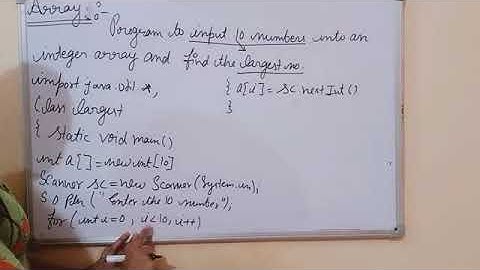 Array:-
Program to input 10 numbers into an
integer array and find the largest no.
import java.util.*,
Class largest
{ static void main()
int a[]=new int[10]
Scanner sc=new Scanner(System.in),
S.O.Pln ("Enter the 10 number"),
for (int i=0, i<10, i++)
{ a[i]=sc.nextInt()
}